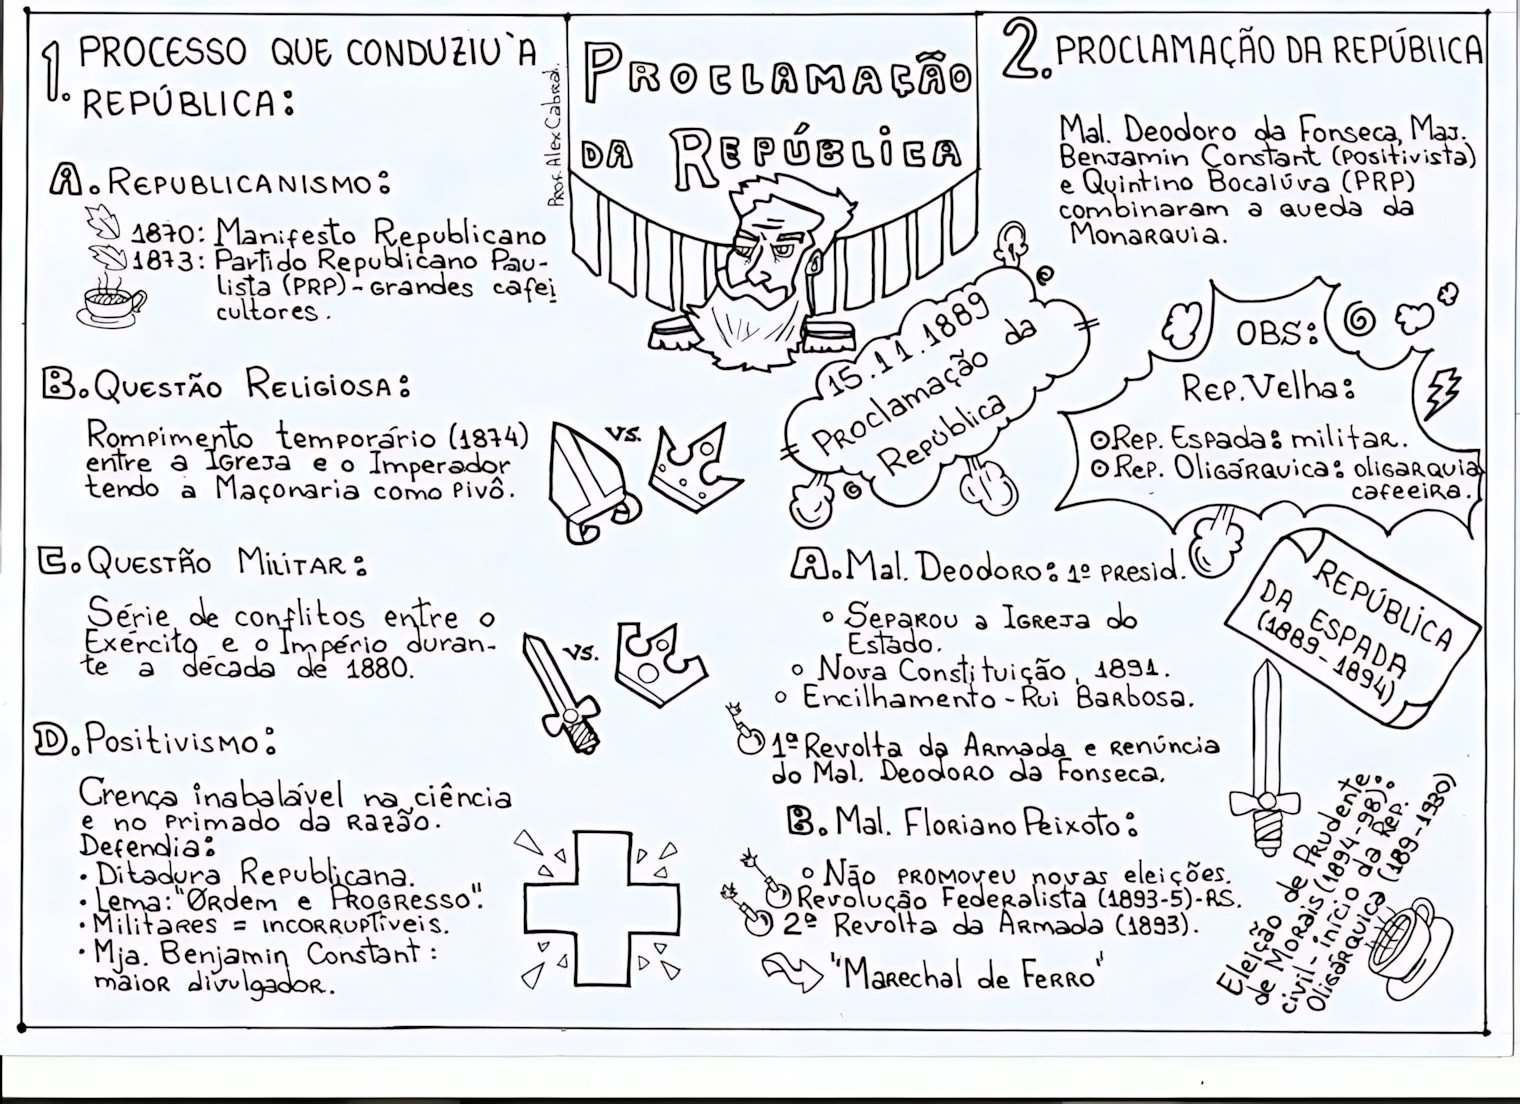 PROCLAMAÇÃO
DA REPÚBLICA
Prof. Alex Cabral.
1. PROCESSO QUE CONDUZIU`A
REPÚBLICA:
A. REPUBLICANISMO:
1870: Manifesto Republicano
1873: Partido Republicano Pau-
lista (PRP) - Grandes cafei
cultores.
B. QUESTÃO RELIGIOSA:
Rompimento temporário (1874)
entre a Igreja e o Imperador
tendo a Maçonaria como pivô.
VS.
C. QUESTÃO MILITAR:
Série de conflitos entre o
Exército e o Império duran-
te a década de 1880.
VS.
D. Positivismo:
Crença inabalável na ciência
e no primado da Razão.
Defendia:
• Ditadura Republicana.
• Lema: "Ordem e Progresso".
• Militares = incorruptíveis.
• Mja. Benjamin Constant:
maior divulgador.
2. PROCLAMAÇÃO DA REPÚBLICA
Mal. Deodoro da Fonseca, Maj.
Benjamin Constant (positivista)
e Quintino Bocaiúva (PRP)
combinaram a queda da
Monarquia.
15.11.1889
Proclamação da
República
OBS:
Rep. Velha:
Rep. Espada: militar.
Rep. Oligárquica: oligarquia
cafeeira.
REPÚBLICA
DA ESPADA
(1889-1894)
A. Mal. Deodoro: 1º presid.
Separou a Igreja do
Estado.
Nova Constituição, 1891.
Encilhamento - Rui Barbosa.
1ª Revolta da Armada e renúncia
do Mal. Deodoro da Fonseca.
B. Mal. Floriano Peixoto:
Não promoveu novas eleições.
Revolução Federalista (1893-5)-RS.
2ª Revolta da Armada (1893).
"Marechal de Ferro"
Eleição de Prudente
de Morais (1894-98):
civil - início da Rep.
Oligárquica (189-1930)